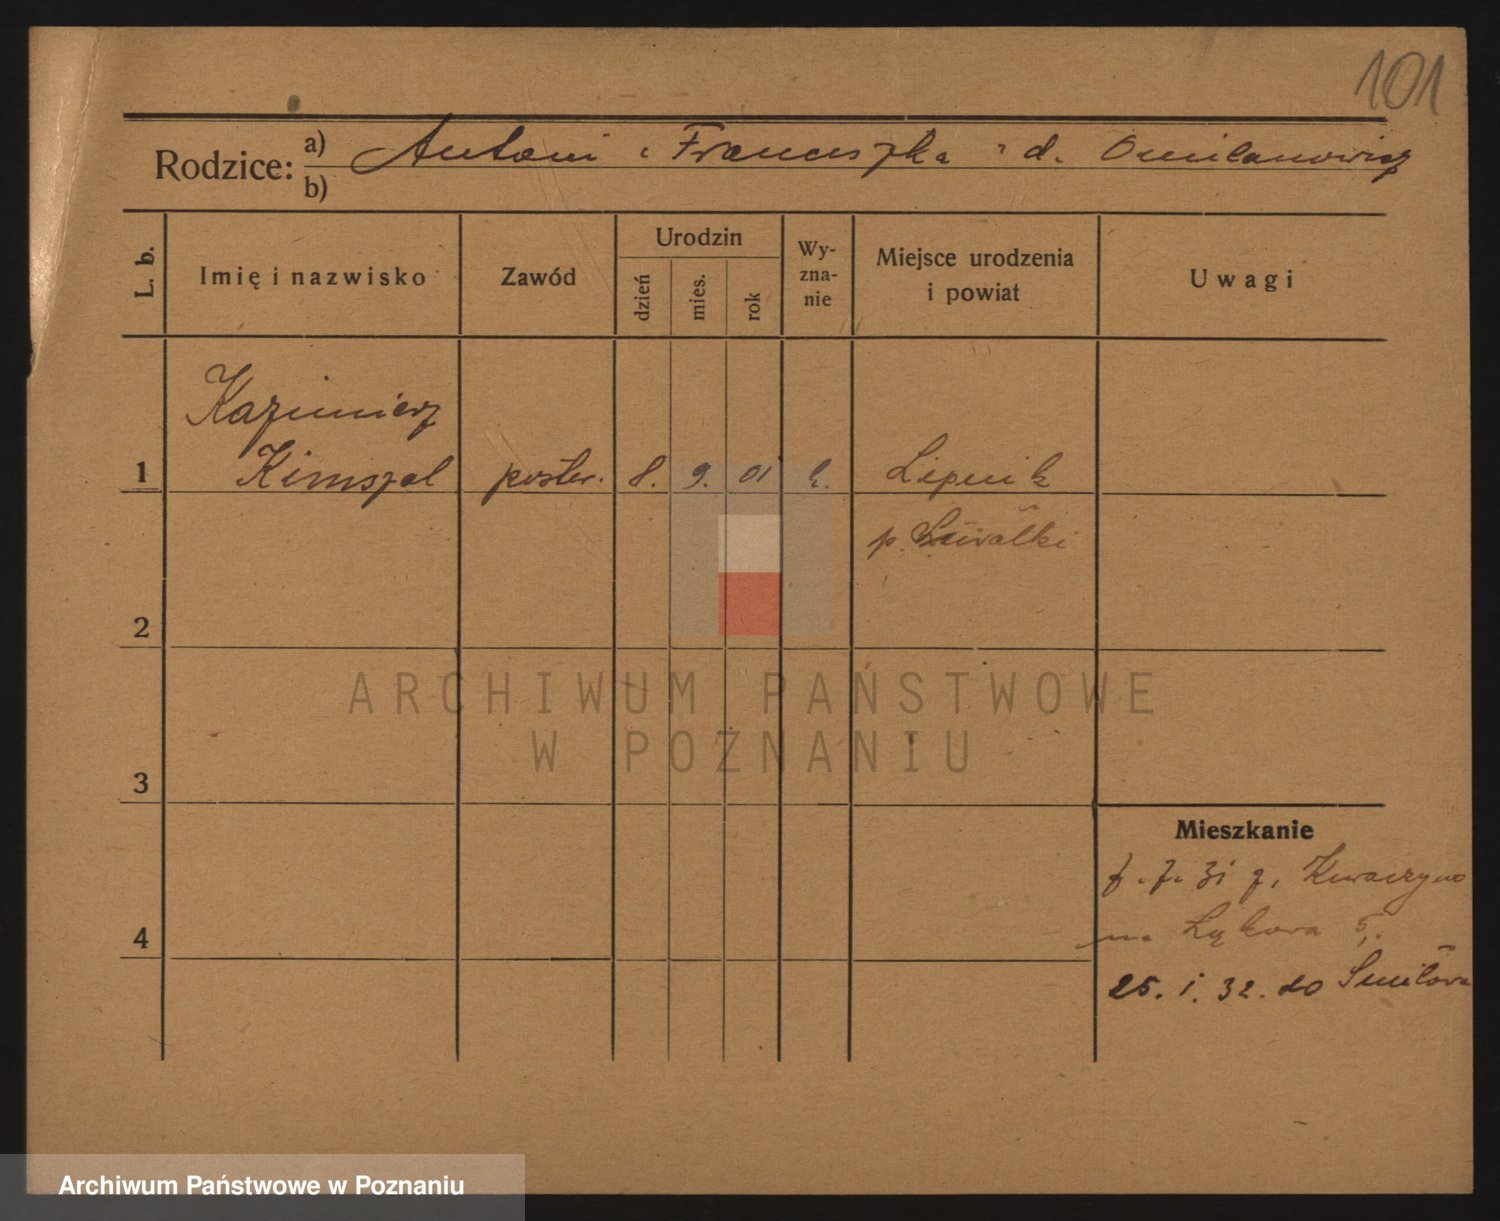 101
Rodzice: a) Antoni i Franciszka z d. Omilanowicz
b)
L. b.
Imię i nazwisko
Zawód
Urodzin
dzień
mies.
rok
Wy-
zna-
nie
Miejsce urodzenia
i powiat
Uwagi
Kazimierz
1 Kimszal poster. 8. 9. 01 k. Lipnik
p. Suwałki
2
3
Mieszkanie
31 z Kwaczyno
na Łąkowa 5.
4
25. 1. 32. do Śmiłowa
ARCHIWUM PAŃSTWOWE
W POZNANIU
Archiwum Państwowe w Poznaniu